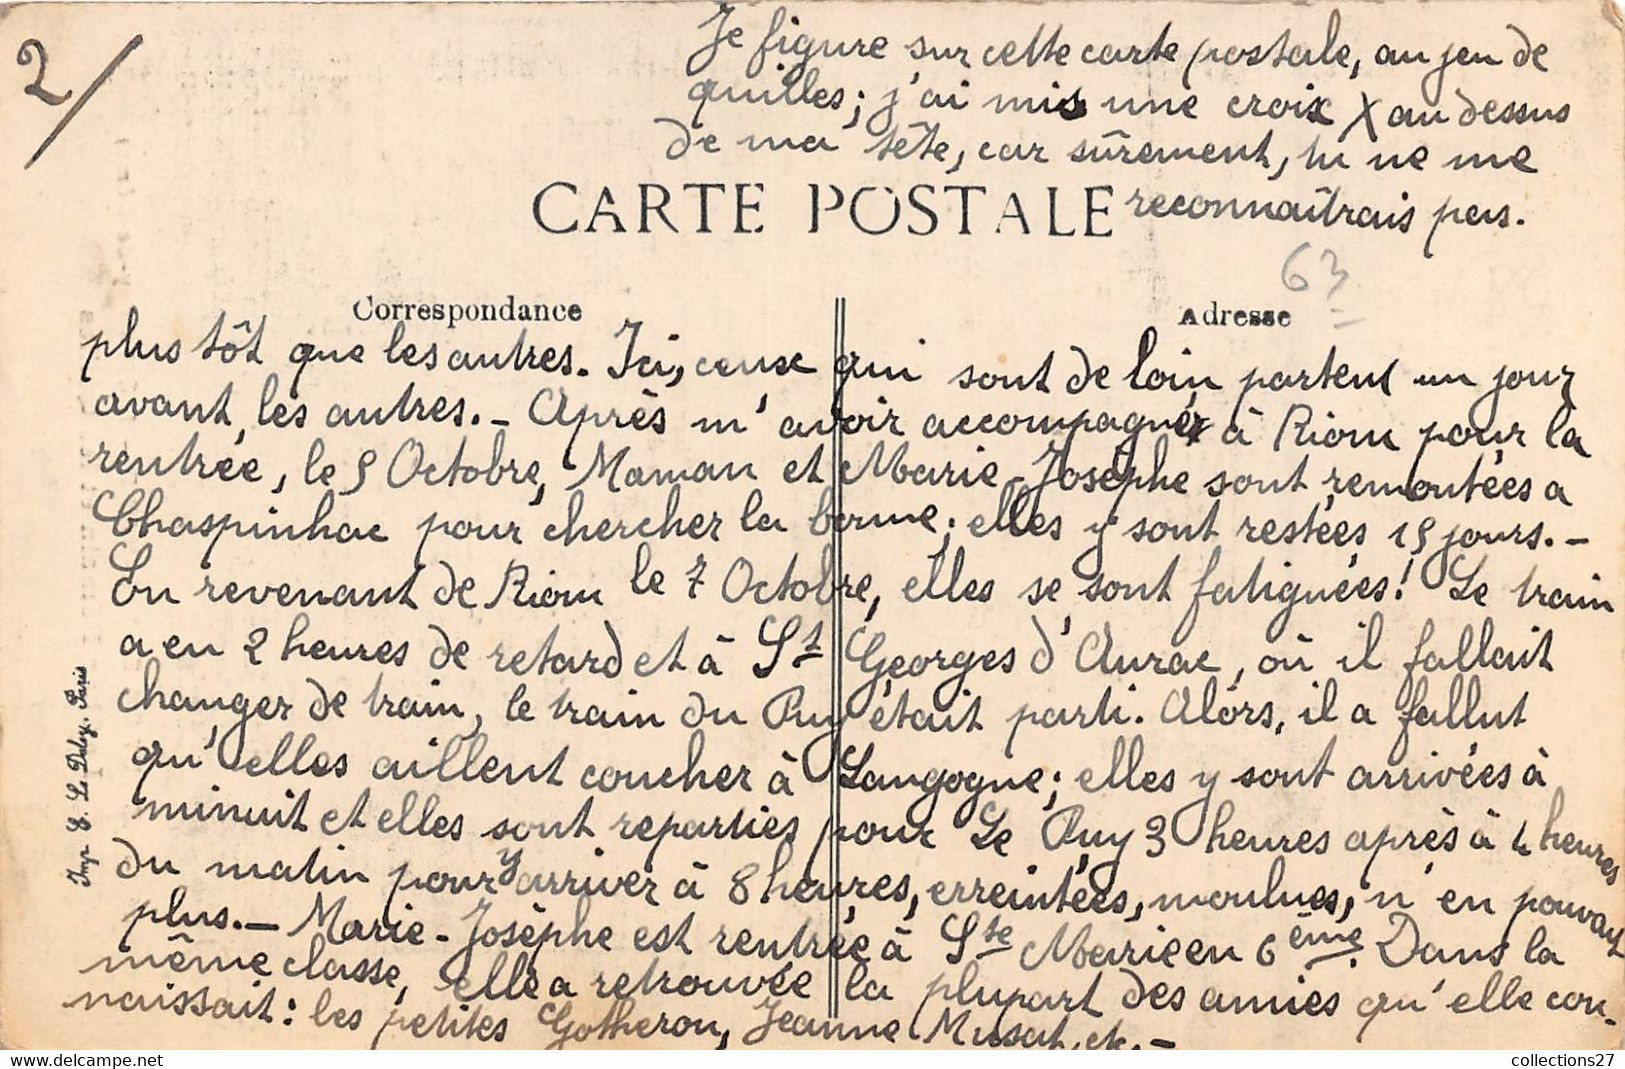 2/
Je figure sur cette carte postale, au jeu de
quilles; j'ai mis une croix X au dessus
de ma tête, car sûrement, tu ne me
reconnaîtrais pas.
CARTE POSTALE
63
Correspondance
Adresse
plus tôt que les autres. Ici, ceux qui sont de loin partent un jour
avant, les autres. - Après m'avoir accompagner à Riom pour la
rentrée, le 5 Octobre, Maman et Marie-Josèphe sont remontées a
Chaspinhac pour chercher la bonne; elles y sont restées 15 jours. -
En revenant de Riom le 7 Octobre, elles se sont fatiguées! Le train
a eu 2 heures de retard et à St Georges d'Aurac, où il fallait
changer de train, le train du Puy était parti. Alors, il a fallut
qu'elles aillent coucher à Langogne; elles y sont arrivées à
minuit et elles sont reparties pour Le Puy 3 heures après à 4 heures
du matin pour y arriver à 8 heures, erreintées, moulues, n'en pouvant
plus. - Marie-Josèphe est rentrée à Ste Marie en 6ème. Dans la
même classe, elle a retrouvée la plupart des amies qu'elle con-
naissait: les petites Gotheron, Jeanne Musat, etc. -
Imp. E. Le Deley, Paris
collections27